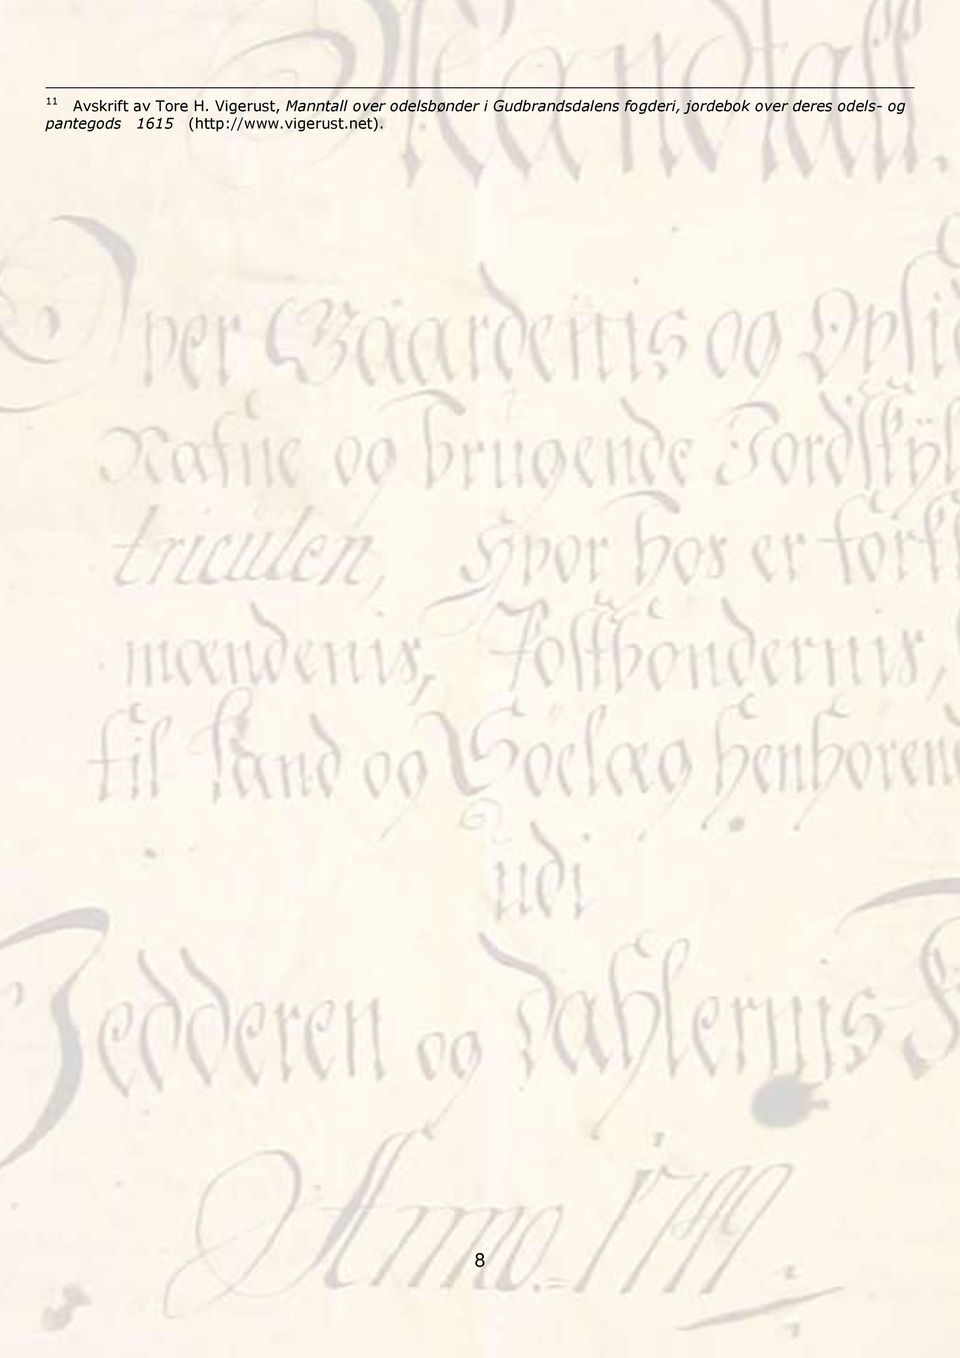 11 Avskrift av Tore H. Vigerust, Manntall over odelsbønder i Gudbrandsdalens fogderi, jordebok over deres odels- og
pantegods 1615 (http://www.vigerust.net).
Mandtall.
Over Gaardenis og Opsid
Nafne og brugende Jordskÿl
triculen, Hvor hos er fork
mændenis, Postbøndernis,
til land og Soelæg henhøren
udi
Jedderen og Dahlernis F
Anno.=1749.
8